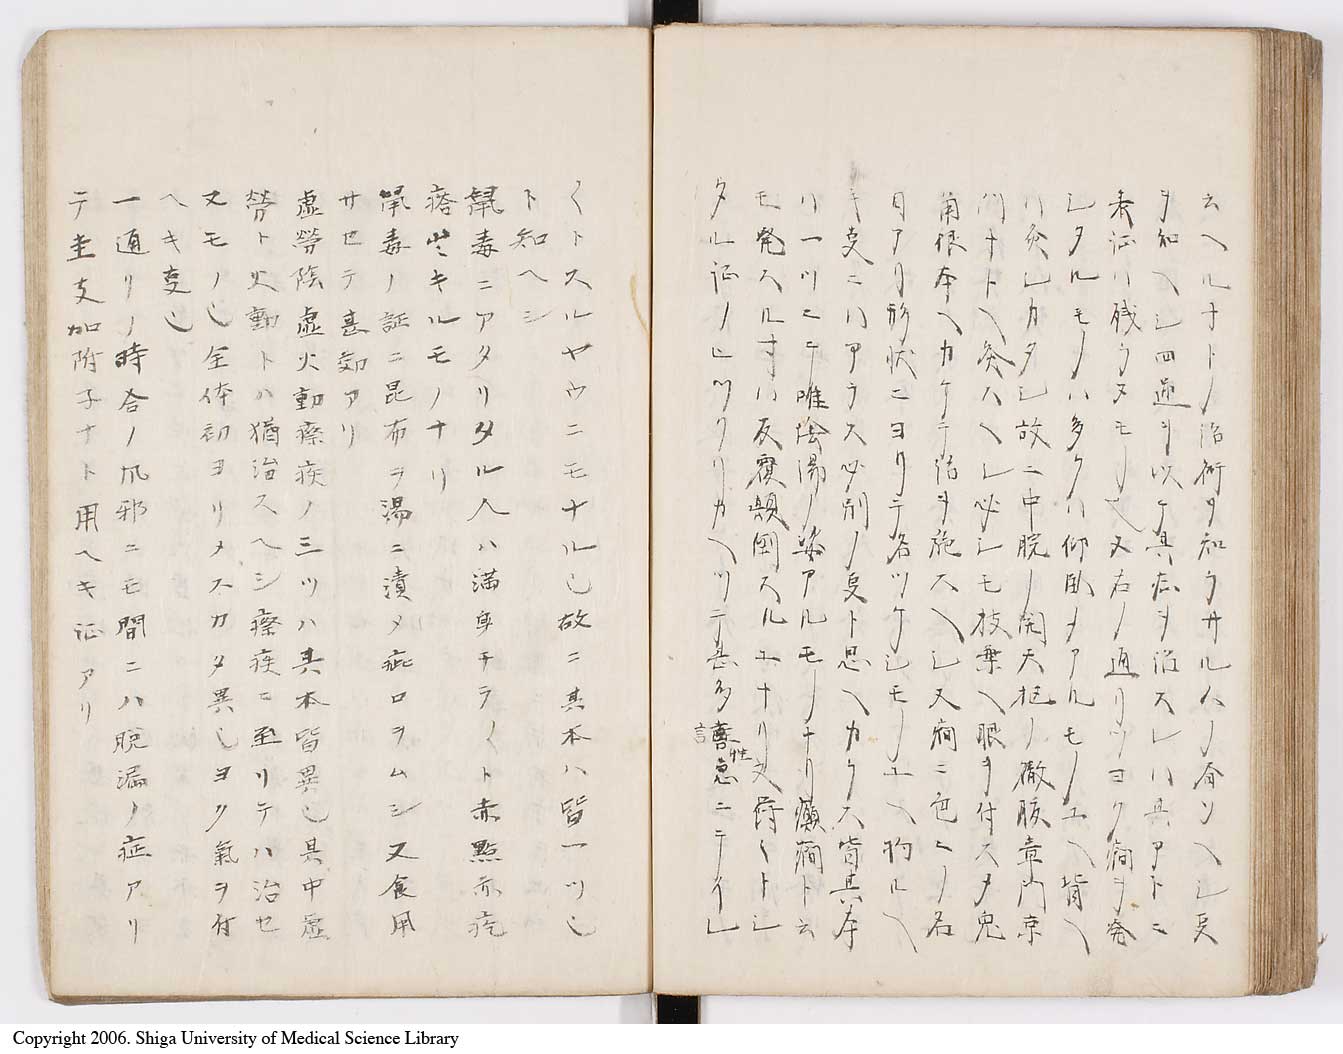 云ヘルナトノ治術ヲ知ラサル人ノ夲ツヘし戻
ヲ知ヘし四逆ヲ以テ其症ヲ治スレハ其アトニ
表証ハ残ラヌモノ也又右ノ通リツヨク痾ヲ発
シタルモノハ多クハ仰臥メアルモノユヘ背ヘ
ハ灸しカタし故ニ中脘ノ関天枢ノ徹腹章門京
門ナトヘ灸スヘし必シモ技棄ヘ眼ヲ付スメ鬼
角根本ヘカケテ治ヲ施スヘし又痾ニ色ヒノ名
目アリ形状ニヨリテ名ツケしモノユヘ拘ルヘ
キ㕝ニハアラス必別ノ㕝ト思ヘカラス皆其本
ハ一ツニテ唯陰陽ノ姿アルモノナリ癲癇ト云
モ発スル寸ハ反覆顛倒スルユナリ又荐くトし
タル証ノしツクリカヘツテ甚多言譱性急ニテイし
くトスルヤウニモナルし故ニ其本ハ皆一ツし
ト知ヘシ
鼠毒ニアタリタル人ハ満身チラくト赤點赤疙
瘩出キルモノナリ
鼠毒ノ証ニ昆布ヲ湯ニ漬メ疵口ヲムシ又食用
サセテ甚効アリ
虚労陰虚火動瘵疾ノ三ツハ其本皆異し其中虚
労ト火動トハ猶治スヘシ瘵疾ニ至リテハ治セ
又モノし全体初ヨリメスカタ異しヨク氣ヲ付
ヘキ㕝し
一通リノ時合ノ風邪ニモ間ニハ脱漏ノ症アリ
テ圭支加附子ナト用ヘキ証アリ
Copyright 2006. Shiga University of Medical Science Library